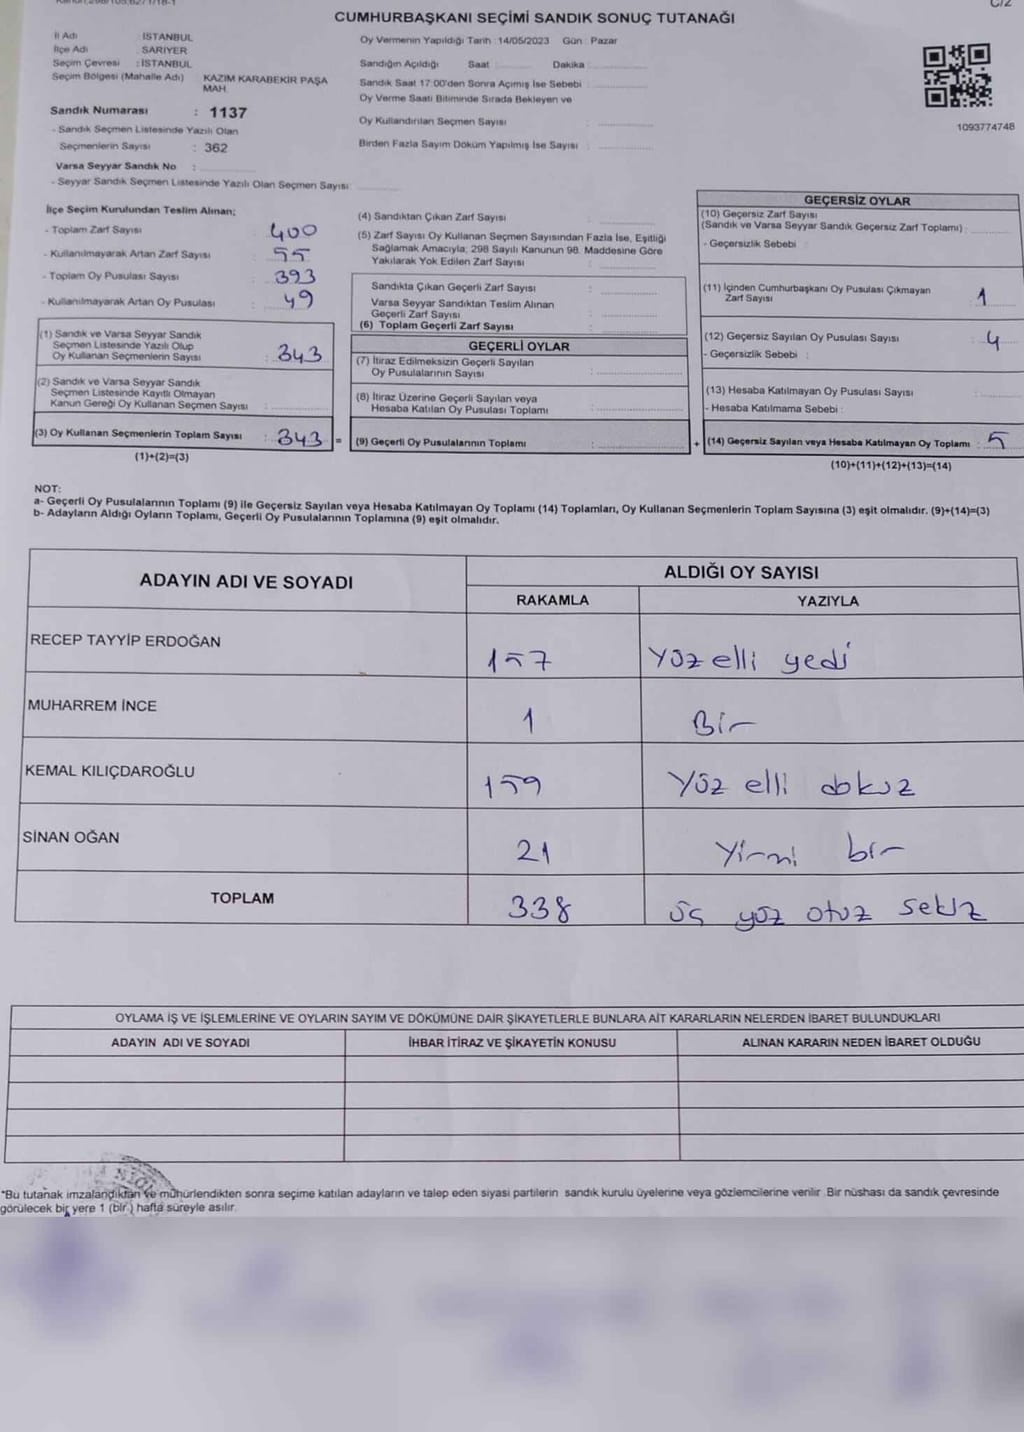 CUMHURBAŞKANI SEÇİMİ SANDIK SONUÇ TUTANAĞI
C/2
İl Adı : İSTANBUL
İlçe Adı : SARIYER
Seçim Çevresi : İSTANBUL
Seçim Bölgesi (Mahalle Adı) KAZIM KARABEKİR PAŞA
MAH.
Sandık Numarası : 1137
- Sandık Seçmen Listesinde Yazılı Olan
Seçmenlerin Sayısı : 362
Varsa Seyyar Sandık No :
- Seyyar Sandık Seçmen Listesinde Yazılı Olan Seçmen Sayısı
Oy Vermenin Yapıldığı Tarih : 14/05/2023 Gün : Pazar
Sandığın Açıldığı Saat Dakika
Sandık Saat 17:00'den Sonra Açımış İse Sebebi :
Oy Verme Saati Bitiminde Sırada Bekleyen ve
Oy Kullandırılan Seçmen Sayısı :
Birden Fazla Sayım Döküm Yapılmış İse Sayısı :
1093774748
İlçe Seçim Kurulundan Teslim Alınan;
- Toplam Zarf Sayısı : 400
- Kullanılmayarak Artan Zarf Sayısı : 55
- Toplam Oy Pusulası Sayısı : 393
- Kullanılmayarak Artan Oy Pusulası : 49
(1) Sandık ve Varsa Seyyar Sandık
Seçmen Listesinde Yazılı Olup
Oy Kullanan Seçmenlerin Sayısı : 343
(2) Sandık ve Varsa Seyyar Sandık
Seçmen Listesinde Kayıtlı Olmayan
Kanun Gereği Oy Kullanan Seçmen Sayısı :
(3) Oy Kullanan Seçmenlerin Toplam Sayısı : 343 =
(1)+(2)=(3)
(4) Sandıktan Çıkan Zarf Sayısı
(5) Zarf Sayısı Oy Kullanan Seçmen Sayısından Fazla İse, Eşitliği
Sağlamak Amacıyla; 298 Sayılı Kanunun 98. Maddesine Göre
Yakılarak Yok Edilen Zarf Sayısı :
Sandıkta Çıkan Geçerli Zarf Sayısı :
Varsa Seyyar Sandıktan Teslim Alınan
Geçerli Zarf Sayısı :
(6) Toplam Geçerli Zarf Sayısı :
GEÇERLİ OYLAR
(7) İtiraz Edilmeksizin Geçerli Sayılan
Oy Pusulalarının Sayısı :
(8) İtiraz Üzerine Geçerli Sayılan veya
Hesaba Katılan Oy Pusulası Toplamı :
(9) Geçerli Oy Pusulalarının Toplamı : +
GEÇERSİZ OYLAR
(10) Geçersiz Zarf Sayısı
(Sandık ve Varsa Seyyar Sandık Geçersiz Zarf Toplamı) :
- Geçersizlik Sebebi :
(11) İçinden Cumhurbaşkanı Oy Pusulası Çıkmayan
Zarf Sayısı : 1
(12) Geçersiz Sayılan Oy Pusulası Sayısı : 4
- Geçersizlik Sebebi :
(13) Hesaba Katılmayan Oy Pusulası Sayısı :
- Hesaba Katılmama Sebebi :
(14) Geçersiz Sayılan veya Hesaba Katılmayan Oy Toplamı : 5
(10)+(11)+(12)+(13)=(14)
NOT:
a- Geçerli Oy Pusulalarının Toplamı (9) ile Geçersiz Sayılan veya Hesaba Katılmayan Oy Toplamı (14) Toplamları, Oy Kullanan Seçmenlerin Toplam Sayısına (3) eşit olmalıdır. (9)+(14)=(3)
b- Adayların Aldığı Oyların Toplamı, Geçerli Oy Pusulalarının Toplamına (9) eşit olmalıdır.
ADAYIN ADI VE SOYADI ALDIĞI OY SAYISI
RAKAMLA YAZIYLA
RECEP TAYYİP ERDOĞAN 157 Yüz elli yedi
MUHARREM İNCE 1 Bir
KEMAL KILIÇDAROĞLU 159 Yüz elli dokuz
SİNAN OĞAN 21 Yirmi bir
TOPLAM 338 üç yüz otuz sekiz
OYLAMA İŞ VE İŞLEMLERİNE VE OYLARIN SAYIM VE DÖKÜMÜNE DAİR ŞİKAYETLERLE BUNLARA AİT KARARLARIN NELERDEN İBARET BULUNDUKLARI
ADAYIN ADI VE SOYADI İHBAR İTİRAZ VE ŞİKAYETİN KONUSU ALINAN KARARIN NEDEN İBARET OLDUĞU
*Bu tutanak imzalandıktan ve mühürlendikten sonra seçime katılan adayların ve talep eden siyasi partilerin sandık kurulu üyelerine veya gözlemcilerine verilir. Bir nüshası da sandık çevresinde
görülecek bir yere 1 (bir) hafta süreyle asılır.